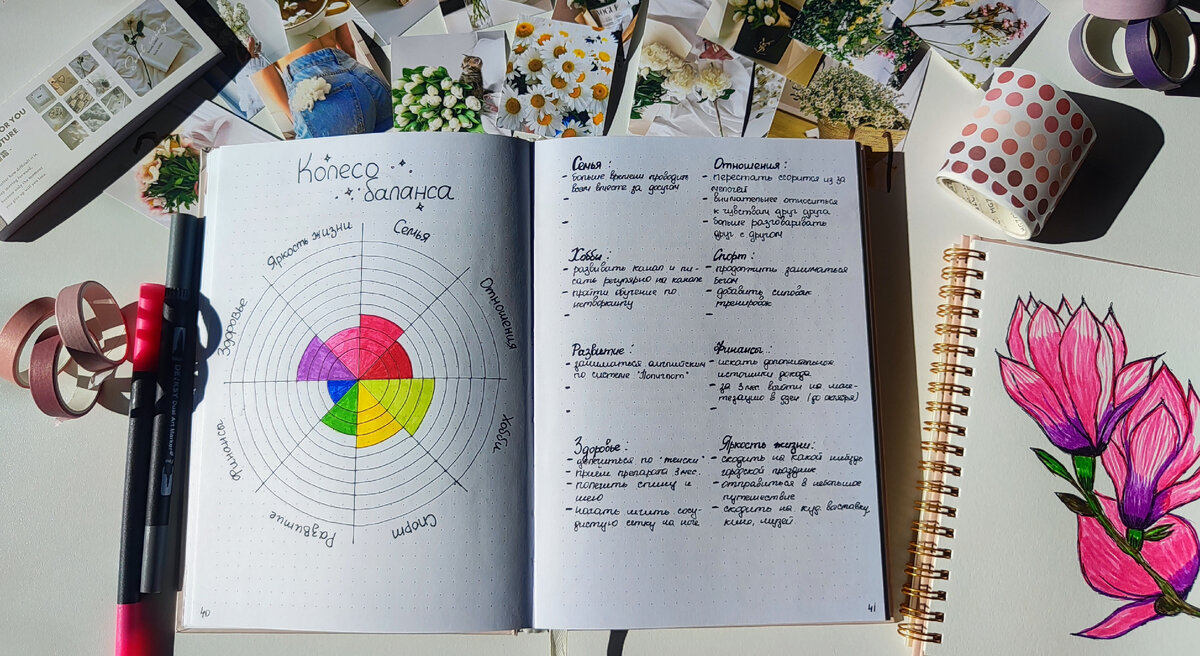 FOR YOU
Колесо
баланса
Яркость жизни
Семья
Отношения
Хобби
Спорт
Развитие
Финансы
Здоровье
40
Семья:
- больше времени проводить
всем вместе за досугом
-
-
Отношения:
- перестать ссорится из за
мелочей
- внимательнее относиться
к чувствам друг друга
- больше разговаривать
друг с другом
Хобби:
- развивать канал и пи-
сать регулярно на канале
- пройти обучение по
нетворкингу
-
Спорт:
- продолжить заниматься
бегом
- добавить силовых
тренировок
-
Развитие:
- заниматься английским
по системе "Полиглот"
-
-
Финансы:
- искать дополнительные
источники дохода
- за 3 мес выйти на моне-
тизацию в дзен (до октября)
-
Здоровье:
- долечиться по "женски"
- приём препарата 3 мес.
- полечить спину и
шею
- начать лечить сосу-
дистую сетку на ноге
Яркость жизни:
- сходить на какой нибудь
городской праздник
- отправиться в небольшое
путешествие
- сходить на худ. выставку,
кино, музей.
41